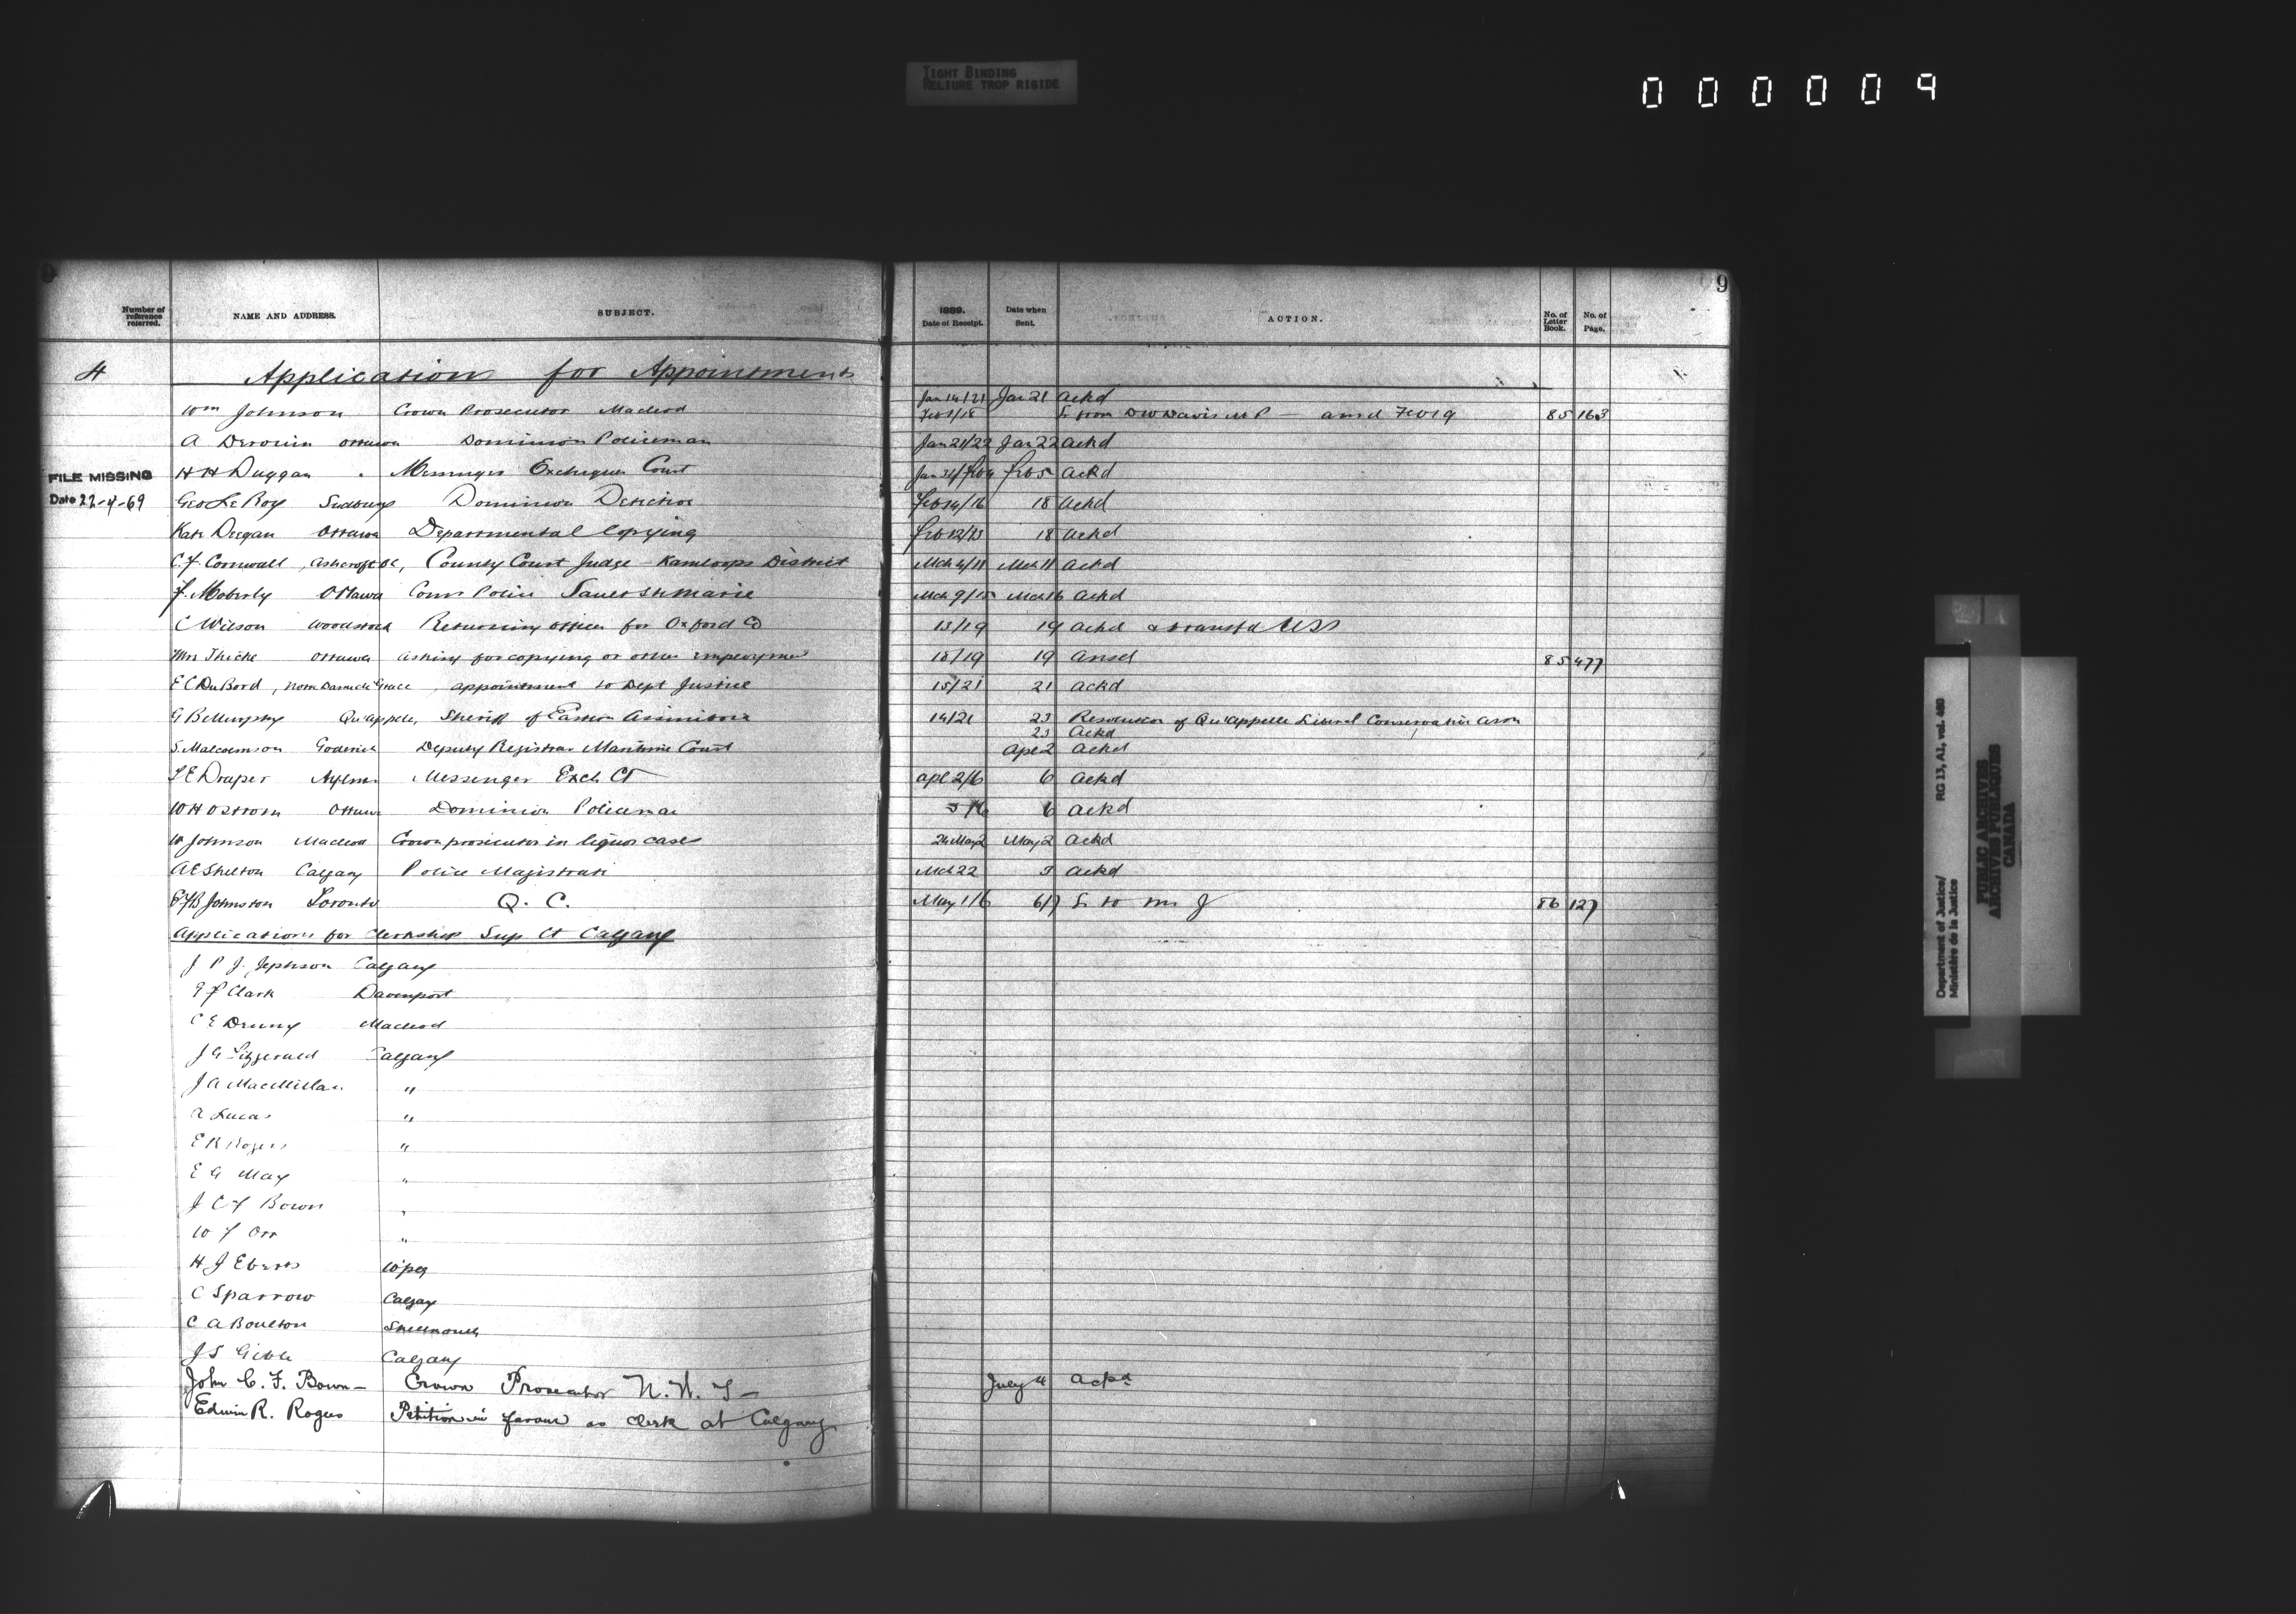 TIGHT BINDING
RELIURE TROP RIGIDE
000009
9
Number of reference referred. NAME AND ADDRESS. SUBJECT. 1889. Date of Receipt. Date when Sent. ACTION. No. of Letter Book. No. of Page.
4 Applications for Appointments
Wm Johnson Crown Prosecutor Macleod Jan 14/21 Jan 21 Ackd
Feb 1/18 L from D W Davis M P — ansd Feb 19 85 163
A Ottawa Dominion Policeman Jan 21/22 Jan 22 Ackd
H H Duggan " Messenger Exchequer Court Jan 31/Feb 4 Feb 5 Ackd
FILE MISSING
Date 22-4-69
Geo Le Roy Sudbury Dominion Detective Feb 14/16 18 Ackd
Kate Deegan Ottawa Departmental Copying Feb 12/13 18 Ackd
C. F. Cornwall, Ashcroft BC, County Court Judge – Kamloops District Mch 4/11 Mch 11 Ackd
F. Moberly Ottawa Comr Police Sault Ste Marie Mch 9/15 Mch 16 Ackd
C Wilson Woodstock Returning Officer for Oxford Co 13/19 19 Ackd & transfd
Mrs Thicke Ottawa asking for copying or other employment 18/19 19 Ansd 85 477
E C DuBord, Notre Dame de Grace, appointment to Dept Justice 15/21 21 Ackd
G B Murphy Qu'appelle, Sheriff of Eastern Assiniboia 14/21 23 Resolution of Qu'appelle Liberal Conservative Assn
23 Ackd
S. Malcomson Goderich Deputy Registrar Maritime Court Apl 2 Ackd
Draper Aylmer Messenger Exch Ct Apl 2/6 6 Ackd
W H Ostrom Ottawa Dominion Policeman 5/6 6 Ackd
W Johnson Macleod Crown prosecutor in liquor cases 24 May 2 May 2 Ackd
A E Shelton Calgary Police Magistrate Mch 22 3 Ackd
E F B Johnston Toronto Q. C. May 1/6 6/7 L to M J 86 127
Applications for Clerkship Sup Ct Calgary
J P J. Jephson Calgary
Clark Davenport
C E Macleod
J G Fitzgerald Calgary
J A MacMillan "
A Lucas "
E R Rogers "
E G May "
J C F Bown "
W F Orr "
H J Eberts Wpeg
C Sparrow Calgary
C A Boulton Shellmouth
J S Calgary
John C. F. Bown – Crown Prosecutor N. W. T – July 4 Ackd
Edwin R. Rogers Petition in favour as clerk at Calgary
Department of Justice/ RG 13, A1, vol. 460
Ministère de la Justice
PUBLIC ARCHIVES
ARCHIVES PUBLIQUES
CANADA